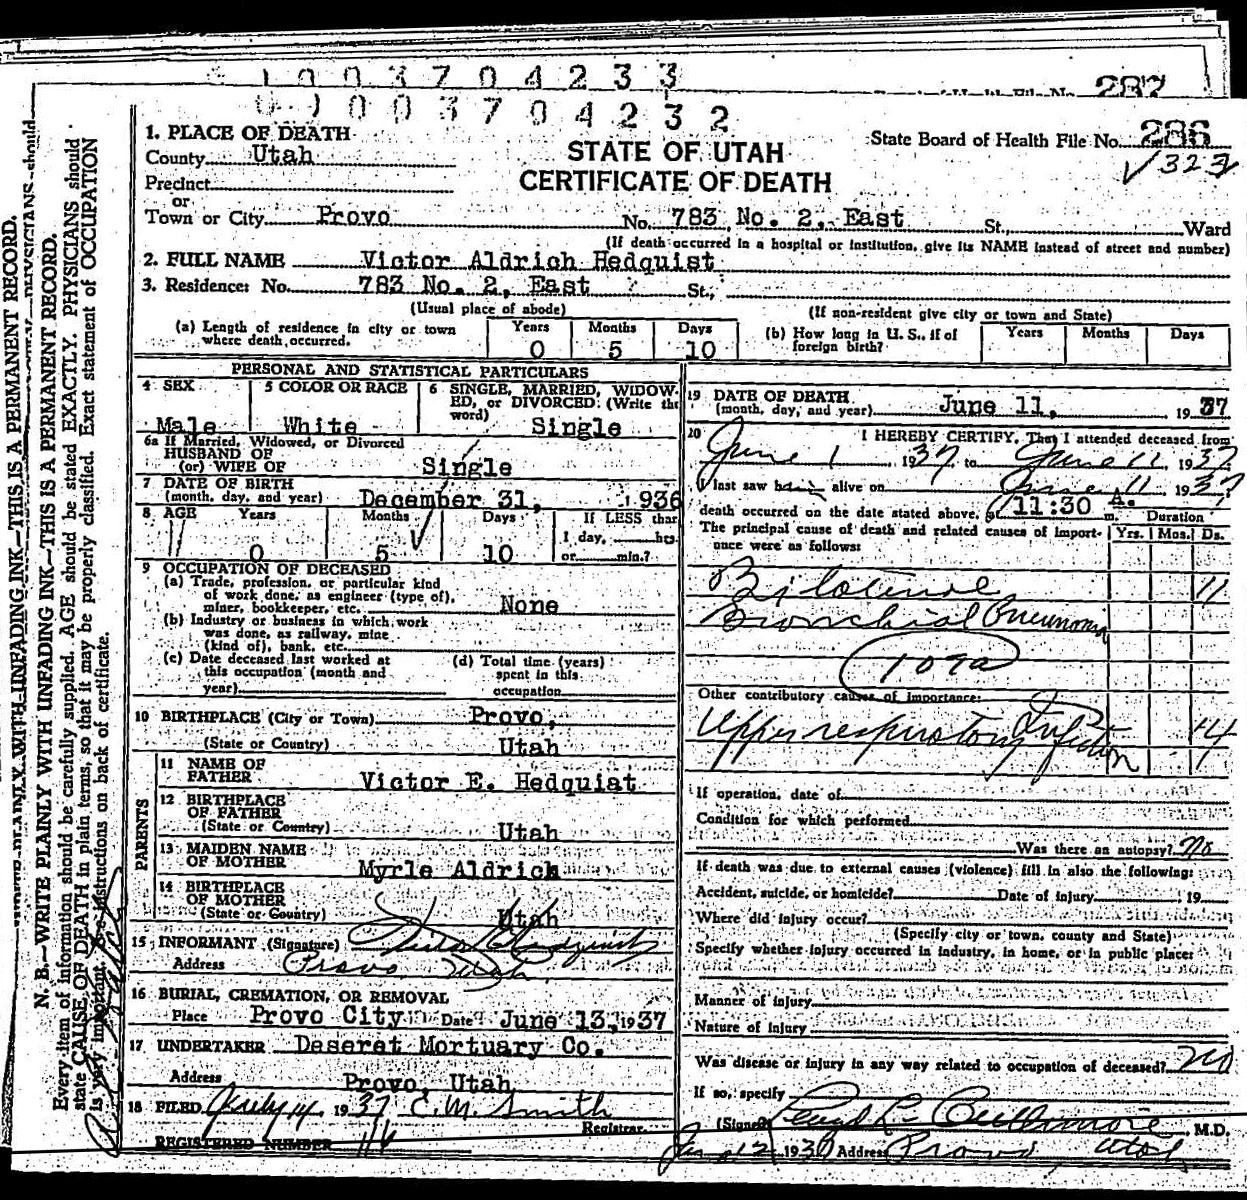 1003704233
287
01003704232
1. PLACE OF DEATH
County Utah
Precinct
or
Town or City Provo No. 783 No. 2, East St., Ward
(If death occurred in a hospital or institution, give its NAME instead of street and number)
STATE OF UTAH
CERTIFICATE OF DEATH
State Board of Health File No. 286
✓ 323
2. FULL NAME Victor Aldrich Hedquist
3. Residence: No. 783 No. 2, East St.,
(Usual place of abode) (If non-resident give city or town and State)
(a) Length of residence in city or town where death occurred. Years 0 Months 5 Days 10
(b) How long in U. S., if of foreign birth? Years Months Days
PERSONAL AND STATISTICAL PARTICULARS
4 SEX Male
5 COLOR OR RACE White
6 SINGLE, MARRIED, WIDOWED, or DIVORCED (Write the word) Single
6a If Married, Widowed, or Divorced
HUSBAND OF
(or) WIFE OF Single
7 DATE OF BIRTH
(month, day, and year) December 31, 1936
8 AGE Years 0 Months 5 Days 10 If LESS than
1 day, hrs.
or min.?
9 OCCUPATION OF DECEASED
(a) Trade, profession, or particular kind
of work done, as engineer (type of),
miner, bookkeeper, etc. None
(b) Industry or business in which work
was done, as railway, mine
(kind of), bank, etc.
(c) Date deceased last worked at
this occupation (month and
year)
(d) Total time (years)
spent in this
occupation
10 BIRTHPLACE (City or Town) Provo,
(State or Country) Utah
PARENTS
11 NAME OF
FATHER Victor E. Hedquist
12 BIRTHPLACE
OF FATHER
(State or Country) Utah
13 MAIDEN NAME
OF MOTHER Myrle Aldrich
14 BIRTHPLACE
OF MOTHER
(State or Country) Utah
15 INFORMANT (Signature) Victor E Hedquist
Address Provo Utah
16 BURIAL, CREMATION, OR REMOVAL
Place Provo City Date June 13, 1937
17 UNDERTAKER Deseret Mortuary Co.
Address Provo, Utah
18 FILED July 14, 1937 E. M. Smith
Registrar.
REGISTERED NUMBER 116
19 DATE OF DEATH
(month, day, and year) June 11, 1937
20 I HEREBY CERTIFY, That I attended deceased from
June 1, 1937, to June 11 1937
I last saw him alive on June 11, 1937
death occurred on the date stated above, at 11:30 A. m.
Duration
The principal cause of death and related causes of importance were as follows: Yrs. Mos. Ds.
Bilateral 11
Bronchial Pneumonia
107a
Other contributory causes of importance:
Upper respiratory Infection 14
If operation, date of
Condition for which performed
Was there an autopsy? No
If death was due to external causes (violence) fill in also the following:
Accident, suicide, or homicide? Date of injury 19
Where did injury occur?
(Specify city or town, county and State)
Specify whether injury occurred in industry, in home, or in public place:
Manner of injury
Nature of injury
Was disease or injury in any way related to occupation of deceased? No
If so, specify
(Signed) Lloyd L. Cullimore M.D.
June 12 1937 Address Provo, Utah
N. B.—WRITE PLAINLY WITH UNFADING INK—THIS IS A PERMANENT RECORD.
Every item of information should be carefully supplied. AGE should be stated EXACTLY. PHYSICIANS should
state CAUSE OF DEATH in plain terms, so that it may be properly classified. Exact statement of OCCUPATION
is very important. See instructions on back of certificate.